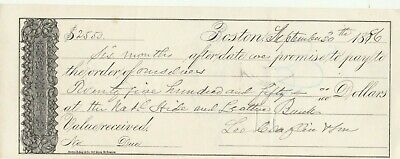 $2550 Boston, September 20th 1886
Six months after date we promise to pay to
the order of ourselves
Twenty five hundred and fifty no/100 Dollars
at the Nat'l Hide and Leather Bank
Value received.
No. Due